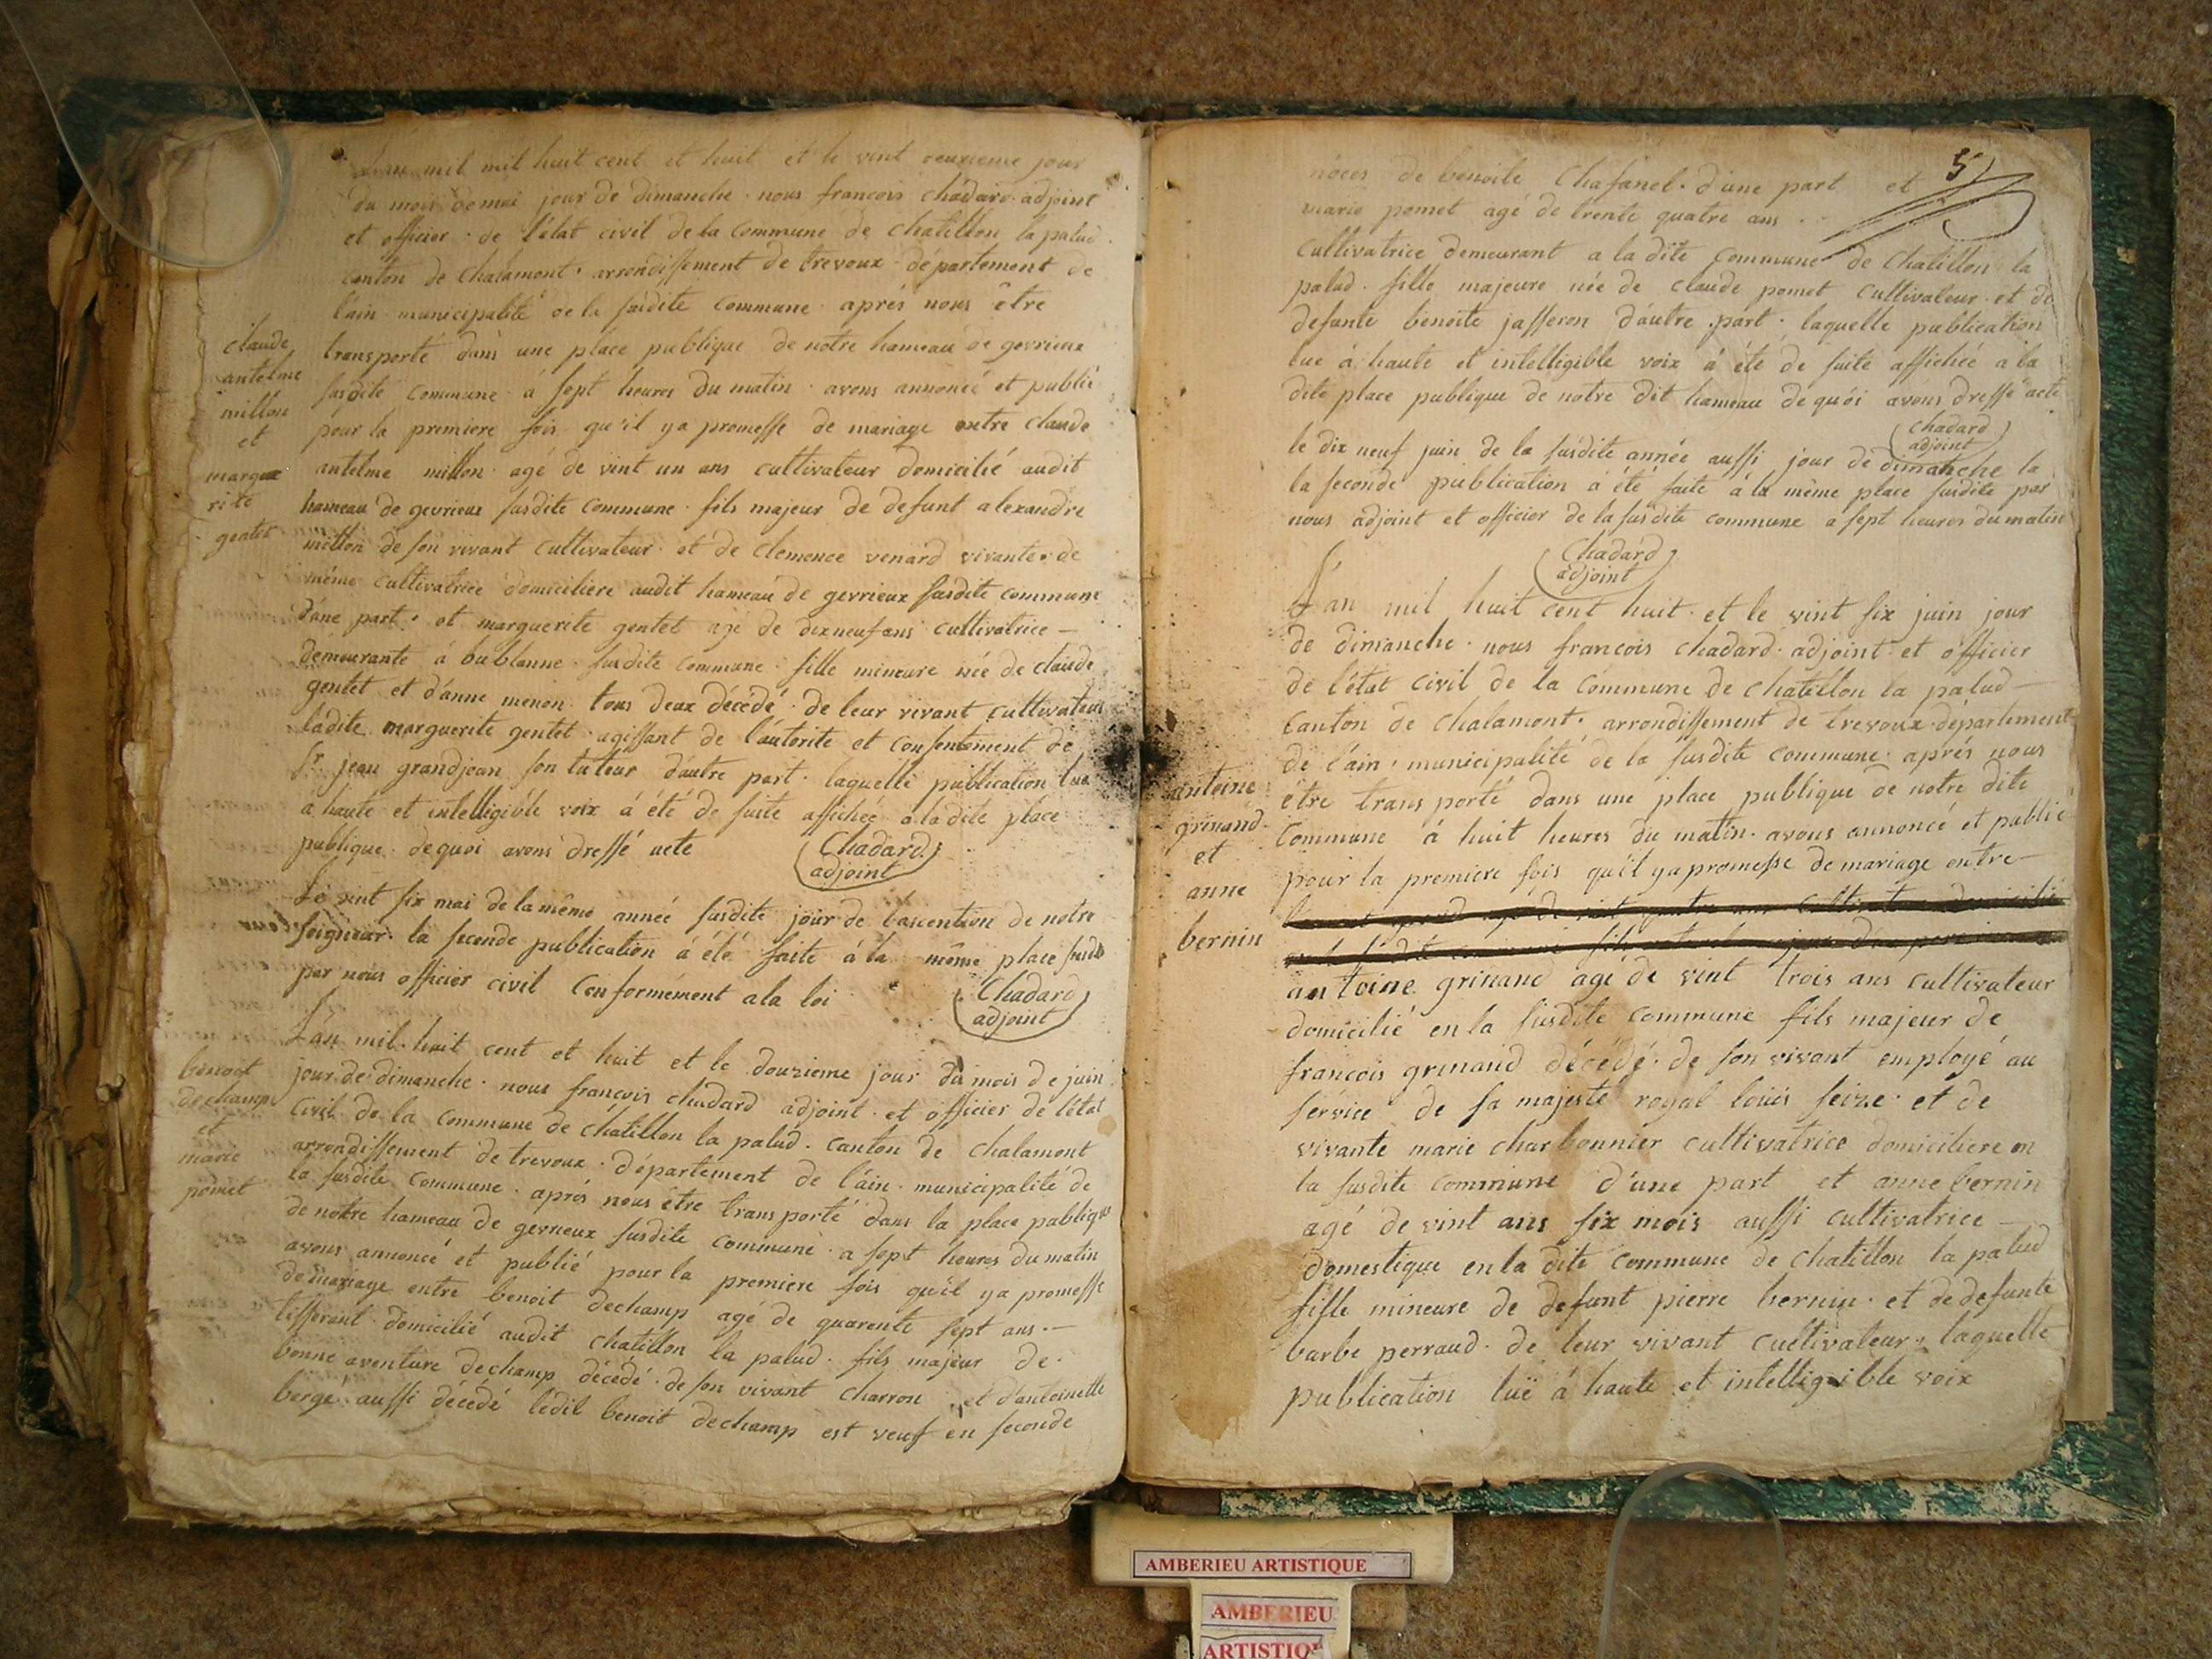 L'an mil mil huit cent et huit et le vint deuxieme jour
du mois de mai jour de dimanche. nous francois chadard adjoint
et officier de l'état civil de la commune de chatillon la palud.
canton de chalamont. arrondissement de trevoux departement de
l'ain municipalité de la susdite commune aprés nous être
transporté dans une place publique de notre hameau de gevrieux
susdite commune á sept heures du matin. avons annoncé et publié
pour la premiere fois qu'il y a promesse de mariage entre claude
antelme millon agé de vint un ans cultivateur domicilié audit
hameau de gevrieux susdite commune. fils majeur de defunt alexandre
millon de son vivant cultivateur. et de clemence venard vivante. de
même cultivatrice domiciliere audit hameau de gevrieux susdite commune
d'une part. et marguerite gentet agé de dixneuf ans cultivatrice —
demeurante á bublanne susdite commune. fille mineure née de claude
gentet et d'anne menon tous deux décédé. de leur vivant cultivateur
ladite marguerite gentet agissant de l'autorité et consentement de
Sr. jean grandjean son tuteur d'autre part. laquelle publication lue
a haute et intelligible voix á été de suite affichée a la dite place
publique. de quoi avons dressé acte
Chadard
adjoint
claude
antelme
millon
et
margue
rite
gentet
Le vint six mai de la même année susdite jour de l'ascention de notre
seigneur. la seconde publication á été faite á la même place susd
par nous officier civil conformément a la loi
Chadard
adjoint
L'an mil huit cent et huit et le douzieme jour du mois de juin
jour de dimanche. nous françois chadard adjoint et officier de l'état
civil de la commune de chatillon la palud. canton de chalamont
arrondissement de trevoux. département de l'ain. municipalité de
la susdite commune. aprés nous etre transporté dans la place publique
de notre hameau de gevrieux susdite commune. a sept heures du matin
avons annoncé et publié pour la premiere fois qu'il y a promesse
de mariage entre benoit dechamp agé de quarente sept ans. —
tisserant domicilié audit chatillon la palud. fils majeur de.
bonne aventure dechamp décédé. de son vivant charron. et d'antoinette
bergé aussi décédé ledit benoit dechamp est veuf en seconde
benoit
dechamp
et
marie
pomet
5
nôces de benoite Chafanel. d'une part et
marie pomet agé de trente quatre ans.
cultivatrice demeurant a la dite commune de chatillon la
palud. fille majeure née de claude pomet cultivateur. et de
defunte benoite jasseron d'autre part. laquelle publication
lue á haute et intelligible voix á été de suite affichée a la
dite place publique de notre dit hameau de quoi avons dressé acte
Chadard
adjoint
le dix neuf juin de la susdite année aussi jour de dimanche la
la seconde publication á été faite á la même place susdite par
nous adjoint et officier de la susdite commune a sept heures du matin
Chadard
adjoint
L'an mil huit cent huit. et le vint six juin jour
de dimanche. nous francois chadard. adjoint et officier
de l'état civil de la commune de chatillon la palud —
canton de chalamont. arrondissement de trevoux. département
de l'ain. municipalité de la susdite commune. aprés nous
être transporté dans une place publique de notre dite
commune á huit heures du matin. avons annoncé et publié
pour la premiere fois qu'il y a promesse de mariage entre
antoine grinand agé de vint trois ans cultivateur
domicilié en la susdite commune fils majeur de
francois grinand décédé. de son vivant employé au
service de sa majesté royal louis seize. et de
vivante marie charbonnier cultivatrice domiciliere en
la susdite commune d'une part et anne bernin
agé de vint ans six mois aussi cultivatrice —
domestique en la dite commune de chatillon la palud
fille mineure de defunt pierre bernin. et de defunte
barbe perraud. de leur vivant cultivateur. laquelle
publication luë á haute et intelligible voix
antoine
grinand
et
anne
bernin
AMBERIEU ARTISTIQUE
AMBERIEU